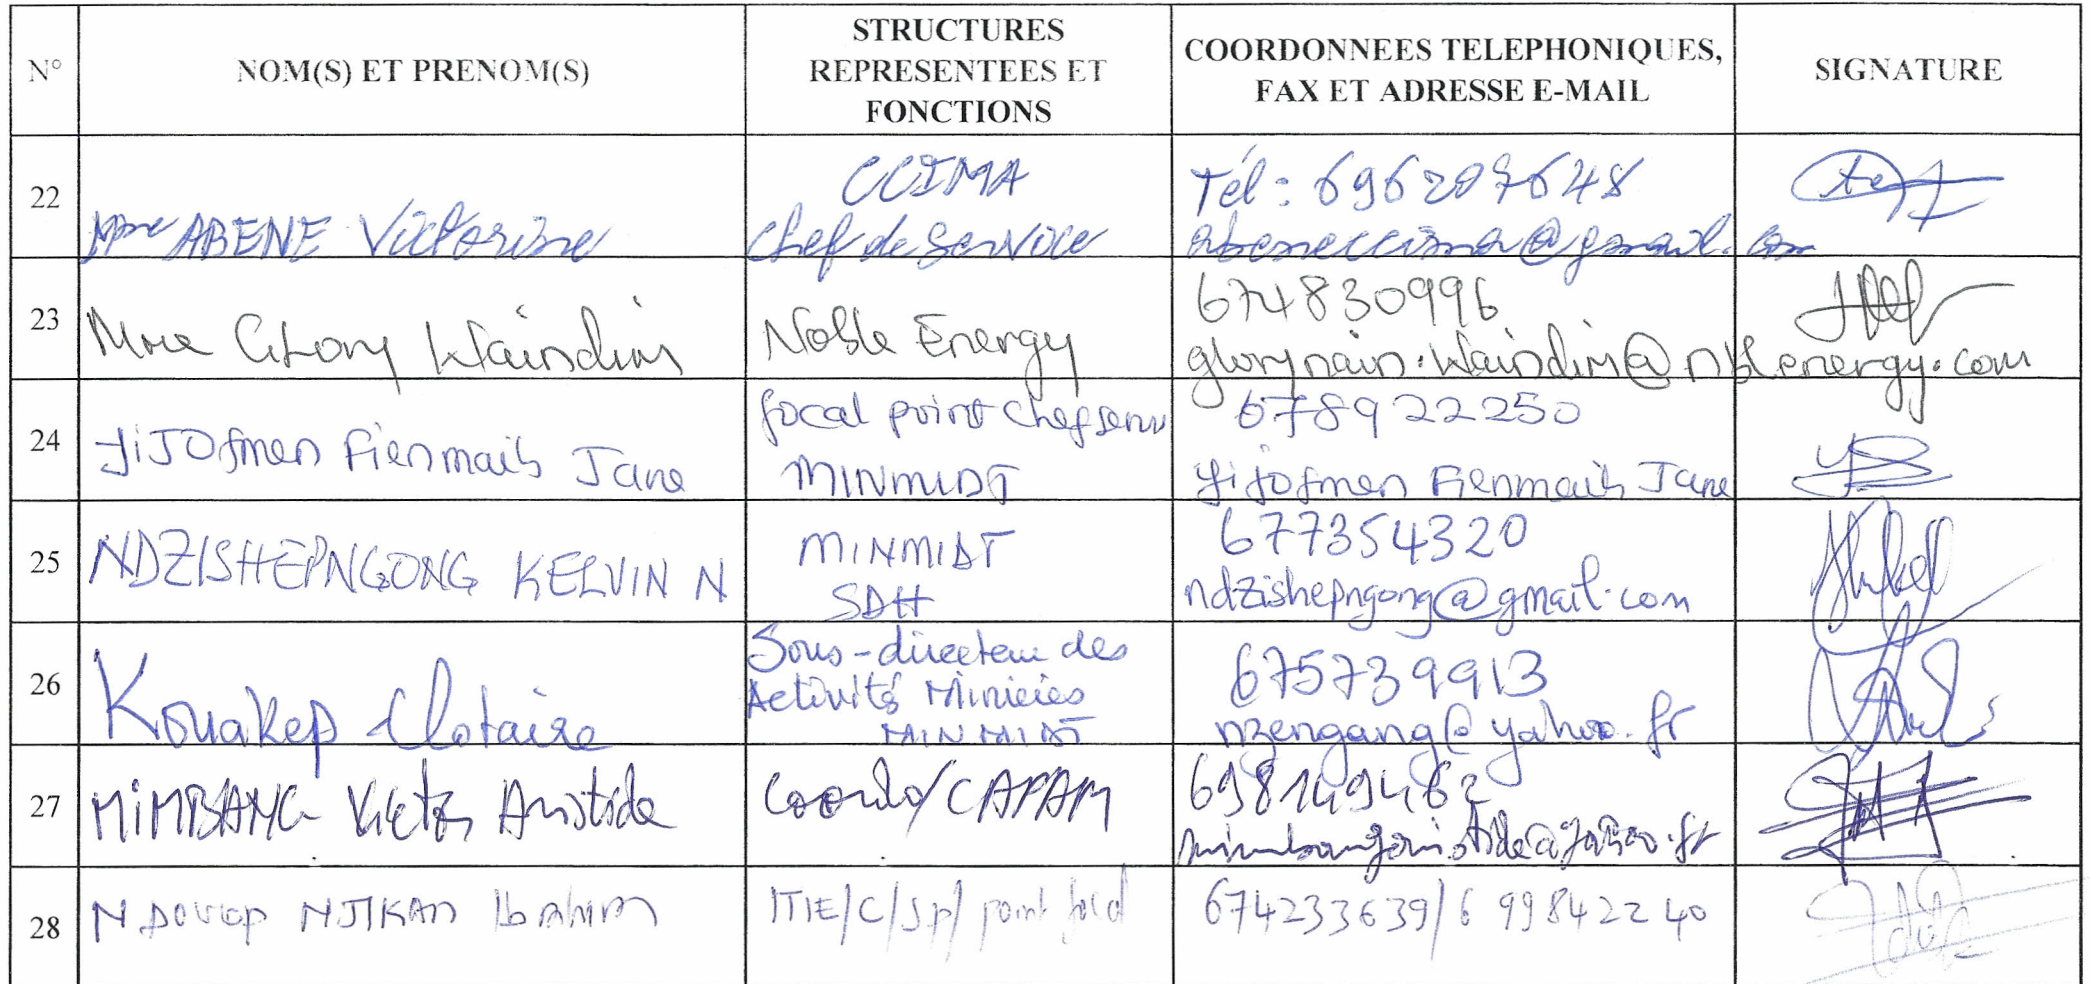 N°
NOM(S) ET PRENOM(S)
STRUCTURES
REPRESENTEES ET
FONCTIONS
COORDONNEES TELEPHONIQUES,
FAX ET ADRESSE E-MAIL
SIGNATURE
22
Mme ABENE Victorine
CCIMA
Chef de Service
Tél : 696207648
abeneccima@gmail.com
23
Mme Glory Waindim
Noble Energy
674830996
glorynain.Waindim@nblenergy.com
24
YiJOfmen Fienmaih Jane
focal point Chef serv
MINMIDT
678922250
YiJofmen Fienmaih Jane
25
NDZISHEPNGONG KELVIN N
MINMIDT
SDH
677354320
ndzishepngong@gmail.com
26
Kouakep Clotaire
Sous-directeur des
Activités Minières
MINMIDT
675739913
nzengang@yahoo.fr
27
MIMBANG Victor Aristide
Coordo/CAPAM
698149462
mimbangaristide@yahoo.fr
28
NDOUOP NJIKAM Ibrahim
ITIE/C/SP/ point focal
674233639/699842240